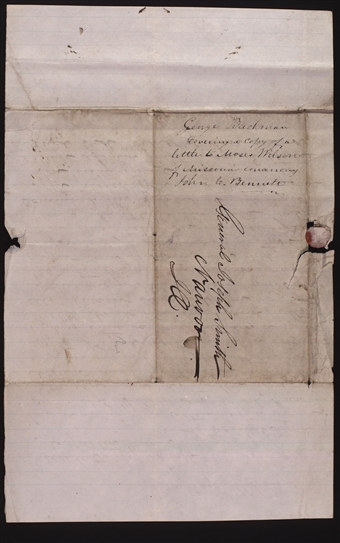 George Bachman
covering a copy of a
letter to Moses Wilson
of Missouri
John C. Bennett
General Joseph Smith
Nauvoo
Ill.